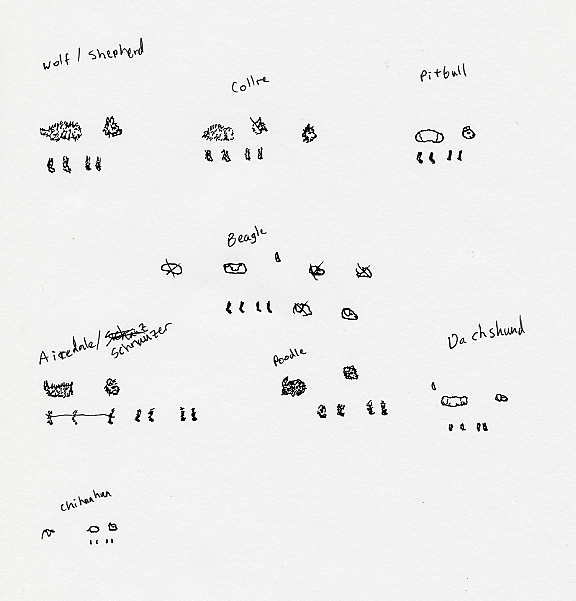 wolf / shepherd
Collie
Pitbull
Beagle
Airedale/
Schnuzer
Poodle
Dachshund
chihauhau